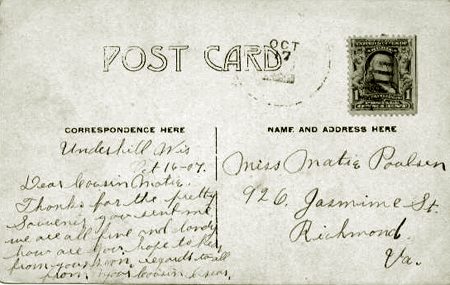 POST CARD
OCT
7
1
CORRESPONDENCE HERE
NAME AND ADDRESS HERE
Underhill Wis
Oct 16-07.
Dear Cousin Matie.
Thanks for the pretty
Souvenir you sent me
we are all fine and dandy
how are you hope to hear
from you soon, regards to all
from your cousin
Miss Matie Poulsen
926. Jasmime St.
Richmond.
Va.